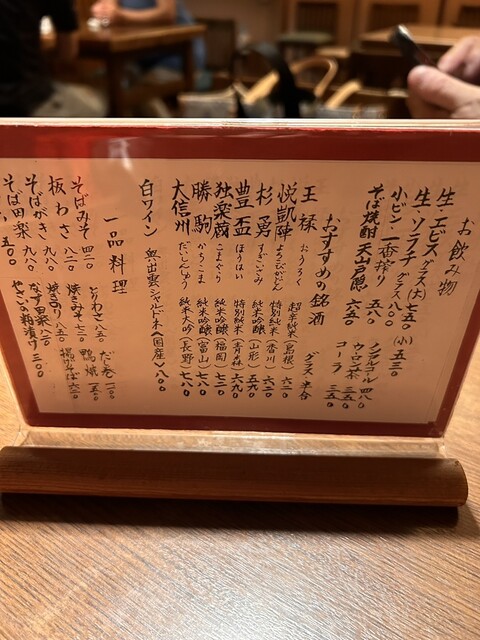 お飲み物
生・エビス グラス(大) 七五〇 (小) 五三〇
生・ソラチ グラス 八〇〇
小ビン・一番搾り 五八〇 ノンアルコール 四八〇
そば焼酎 天山戸隠 六五〇 ウーロン茶 三五〇
コーラ 三五〇
おすすめの銘酒 グラス 半合
王祿 おうろく 超辛純米(島根) 六二〇
悦凱陣 よろこびがいじん 特別純米(香川) 六二〇
杉勇 すぎいさみ 純米吟醸(山形) 五九〇
豊盃 ほうはい 特別純米(青森) 六九〇
独楽蔵 こまぐら 純米吟醸(福岡) 七三〇
勝駒 かちこま 純米吟醸(富山) 七八〇
大信州 だいしんしゅう 純米大吟(長野) 七八〇
白ワイン 奥出雲シャルドネ〈国産〉 八〇〇
一品料理
そばみそ 四二〇 とりわさ 八五〇 だし巻
板わさ 八二〇 焼きみそ 七三〇 鴨焼
そばがき 九八〇 焼きのり 八五〇 揚げそば 六三〇
そば田楽 九八〇 なす田楽 八二〇
五〇〇 やさいの麹漬け 三〇〇